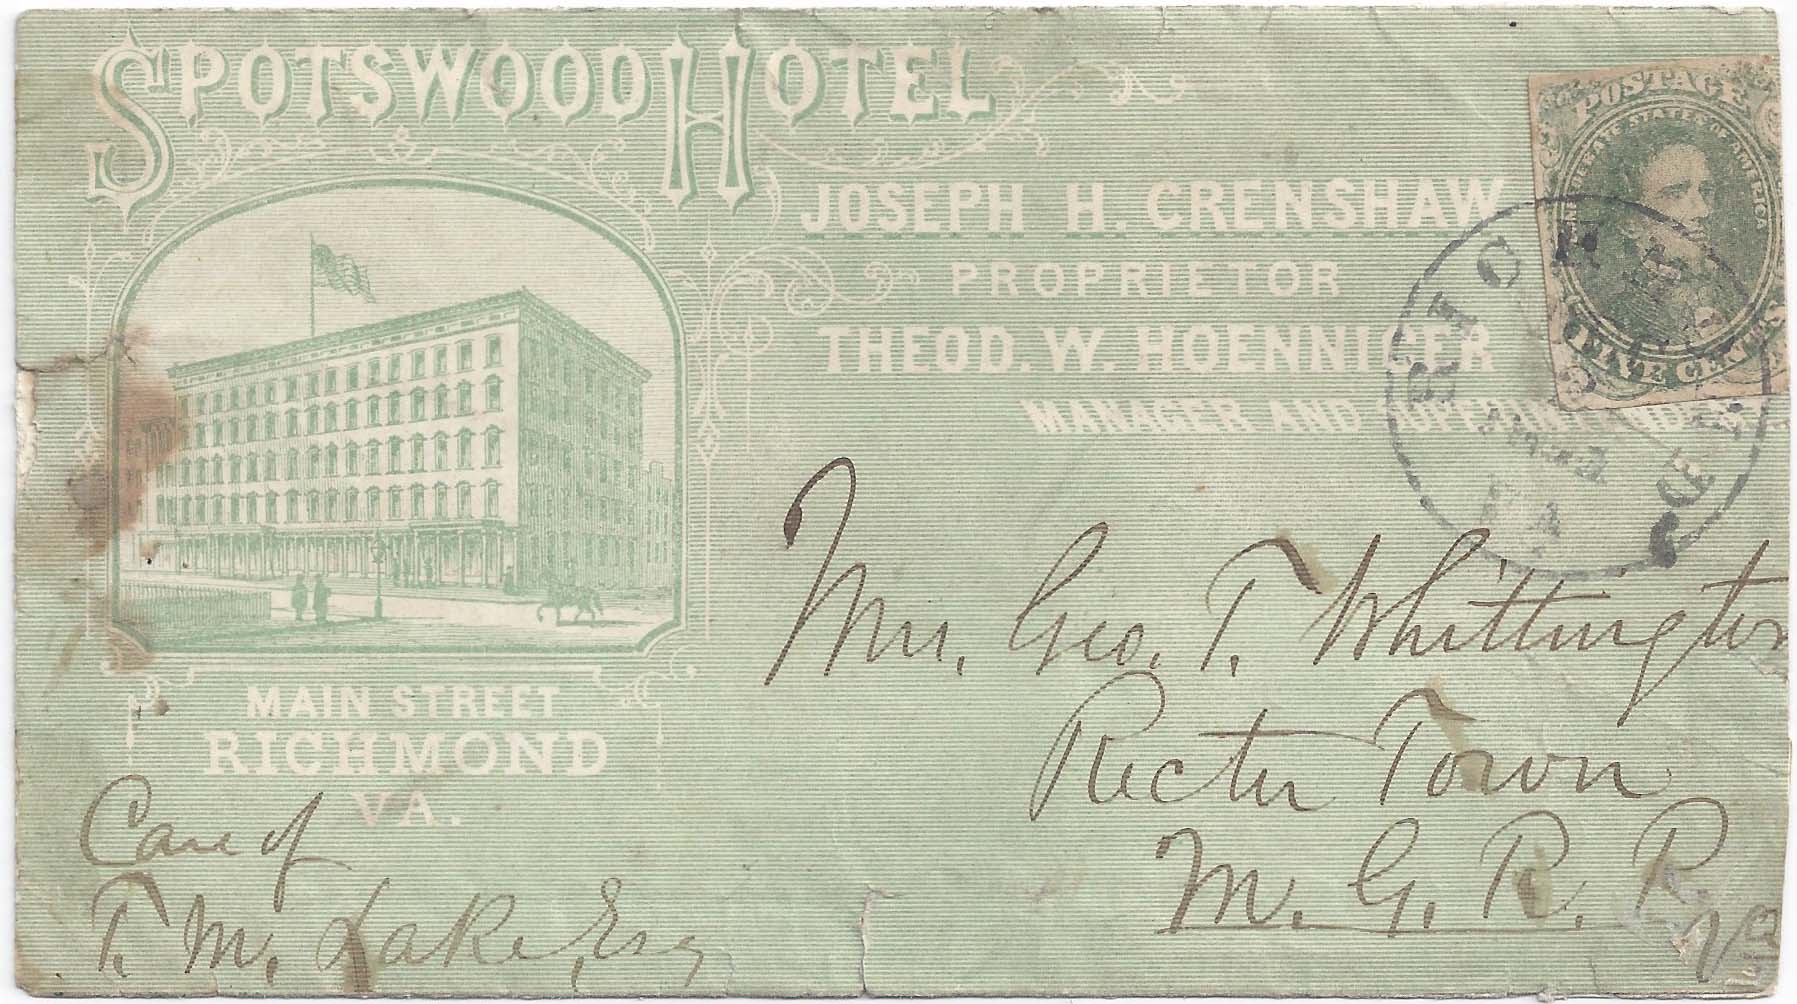 SPOTSWOOD HOTEL
JOSEPH H. CRENSHAW
PROPRIETOR
THEOD. W. HOENNIGER
MANAGER AND
POSTAGE
STATES OF AMERICA
FIVE CENTS
RICHMOND
VA
MAIN STREET
RICHMOND
VA.
Mr. Geo. T. Whittington
Rector Town
M. G. R. R.
Va
Care of
T. M. Lake, Esq